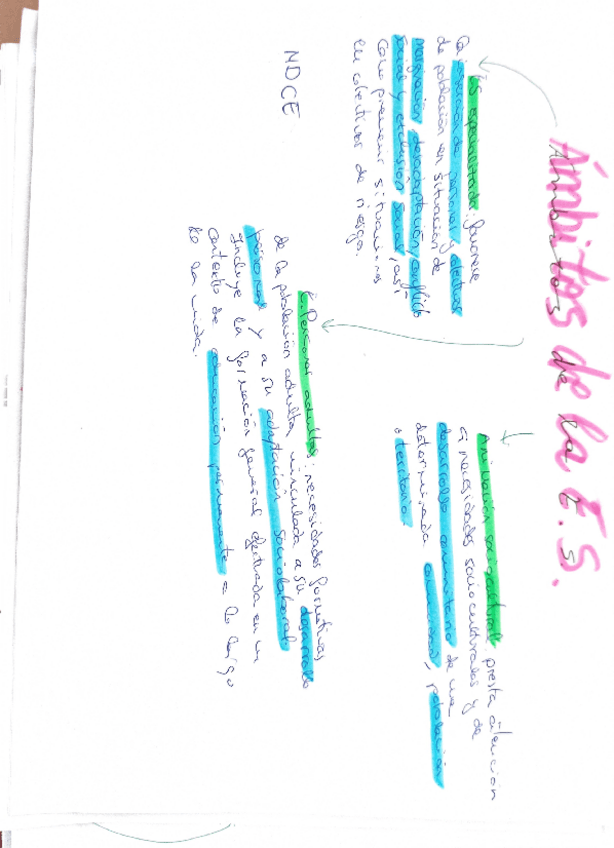 Ámbitos de la E.S.
Ed. especializada: favorece
la inserción de personas y colectivos
de población en situación de
marginación, desadaptación, conflicto
social y exclusión social, así
como prevenir situaciones
en colectivos de riesgo.
Animación sociocultural: presta atención
a necesidades socioculturales y de
desarrollo comunitario de una
determinada comunidad, población
o territorio
E. Personas adultas: necesidades formativas
de la población adulta vinculada a su desarrollo
personal y a su adaptación sociolaboral
Incluye la formación general efectuada en un
contexto de educación permanente a lo largo
de la vida.
NDCE